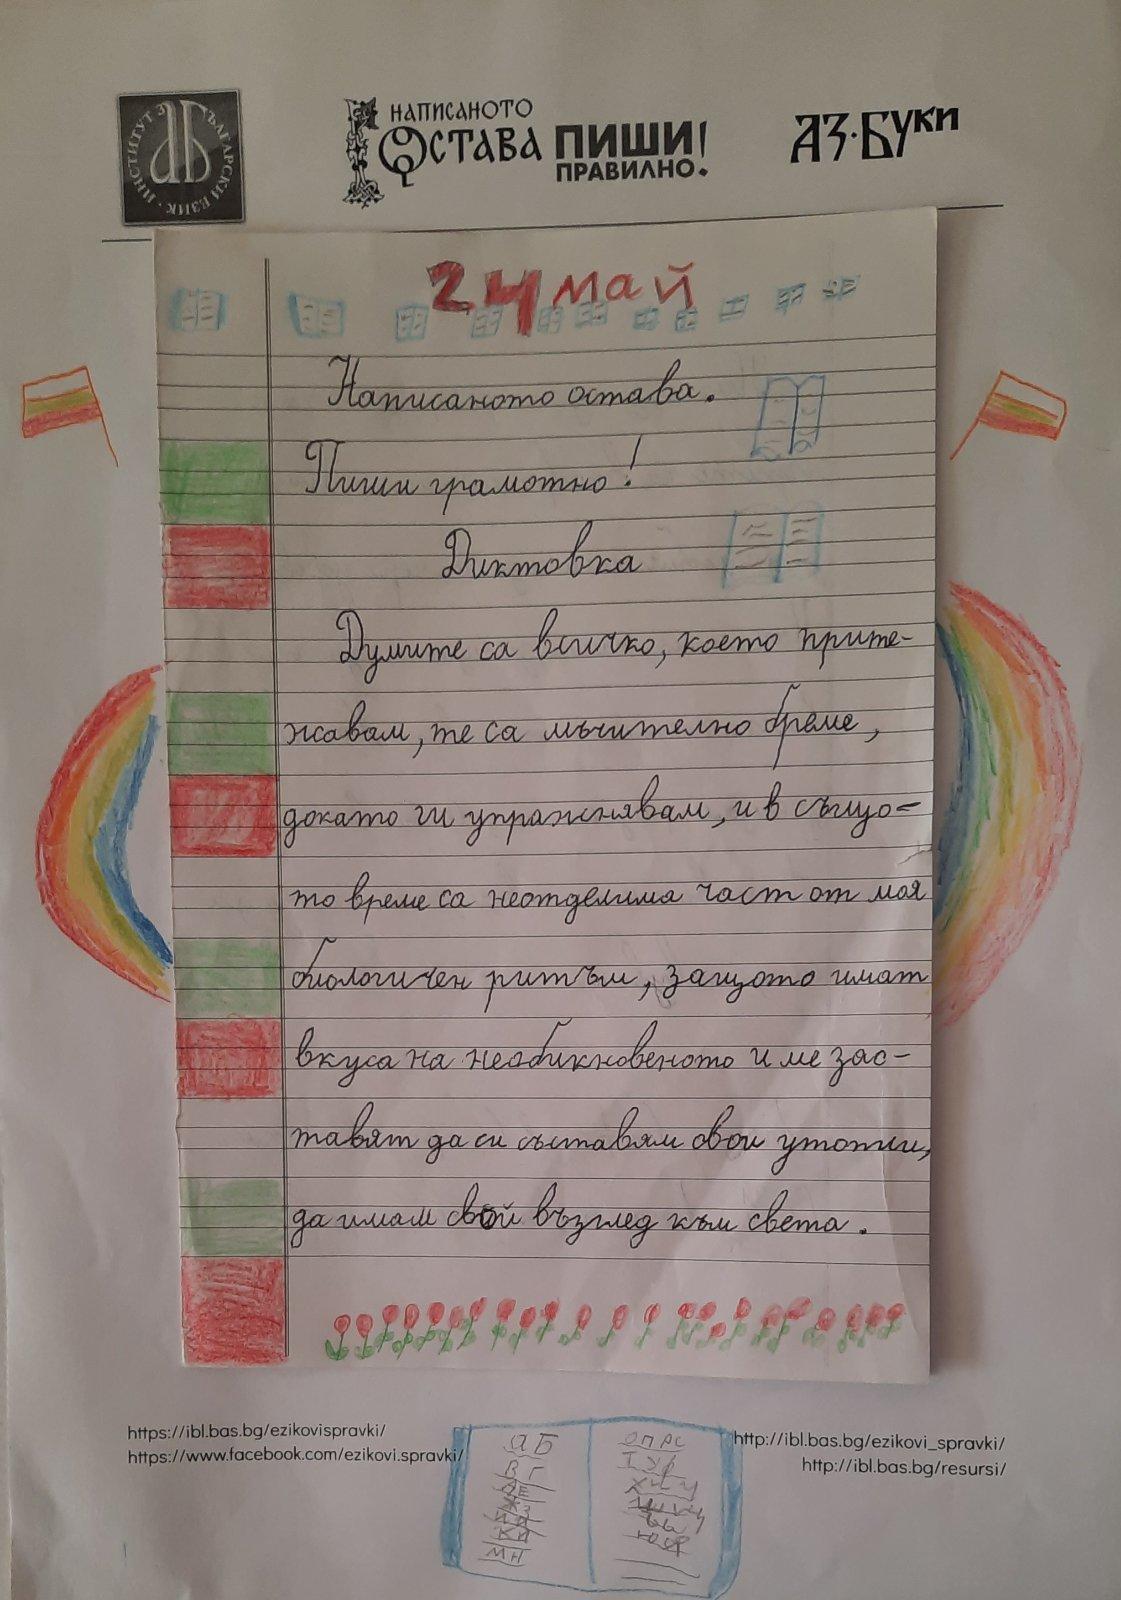 ИНСТИТУТ ЗА БЪЛГАРСКИ ЕЗИК
НАПИСАНОТО
ОСТАВА ПИШИ!
ПРАВИЛНО.
АЗ·БУКИ
24 май
Написаното остава.
Пиши грамотно!
Диктовка
Думите са всичко, което прите-
жавам, те са мъчително бреме,
докато ги упражнявам, и в също-
то време са неотделима част от моя
биологичен ритъм, защото имат
вкуса на необикновеното и ме зас-
тавят да си съставям свои утопии,
да имам свой възглед към света.
https://ibl.bas.bg/ezikovispravki/
https://www.facebook.com/ezikovi.spravki/
http://ibl.bas.bg/ezikovi_spravki/
http://ibl.bas.bg/resursi/
АБ
ВГ
МН
ОПРС
ТУФ